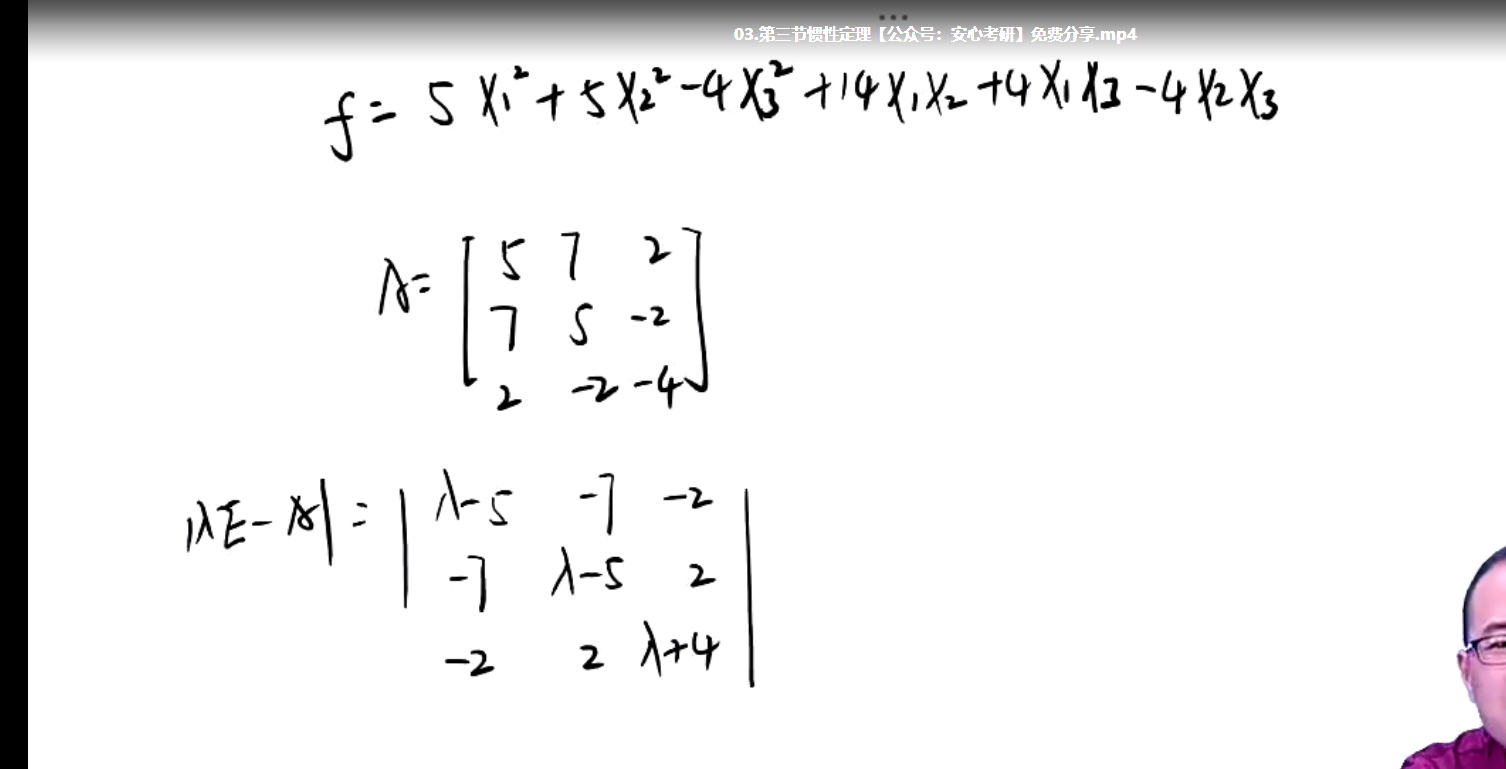 03.第三节惯性定理【公众号：安心考研】免费分享.mp4
f = 5x₁² + 5x₂² -4x₃² +14x₁x₂ +4x₁x₃ -4x₂x₃
A= [ 5 7 2
7 5 -2
2 -2 -4 ]
|λE-A| = | λ-5 -7 -2
-7 λ-5 2
-2 2 λ+4 |